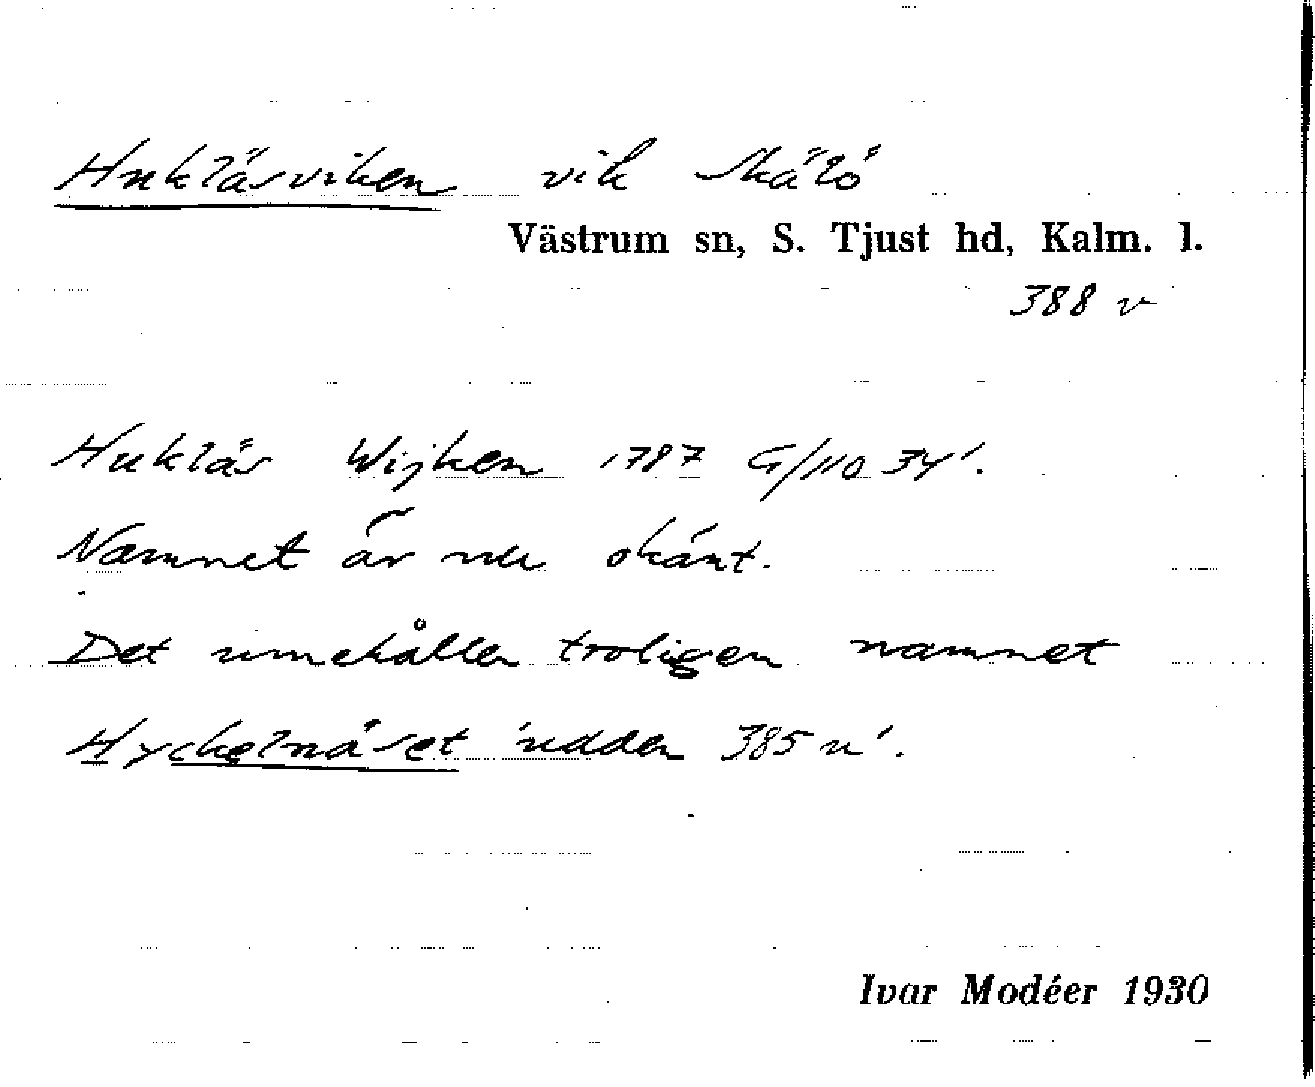 Hukläsviken vik Skälö
Västrum sn, S. Tjust hd, Kalm. l.
388 v
Hukläs Wijken 1787 G/110 34'.
Namnet är nu okänt.
Det innehåller troligen namnet
Hyckelnäset 'udden 385 n'.
Ivar Modéer 1930